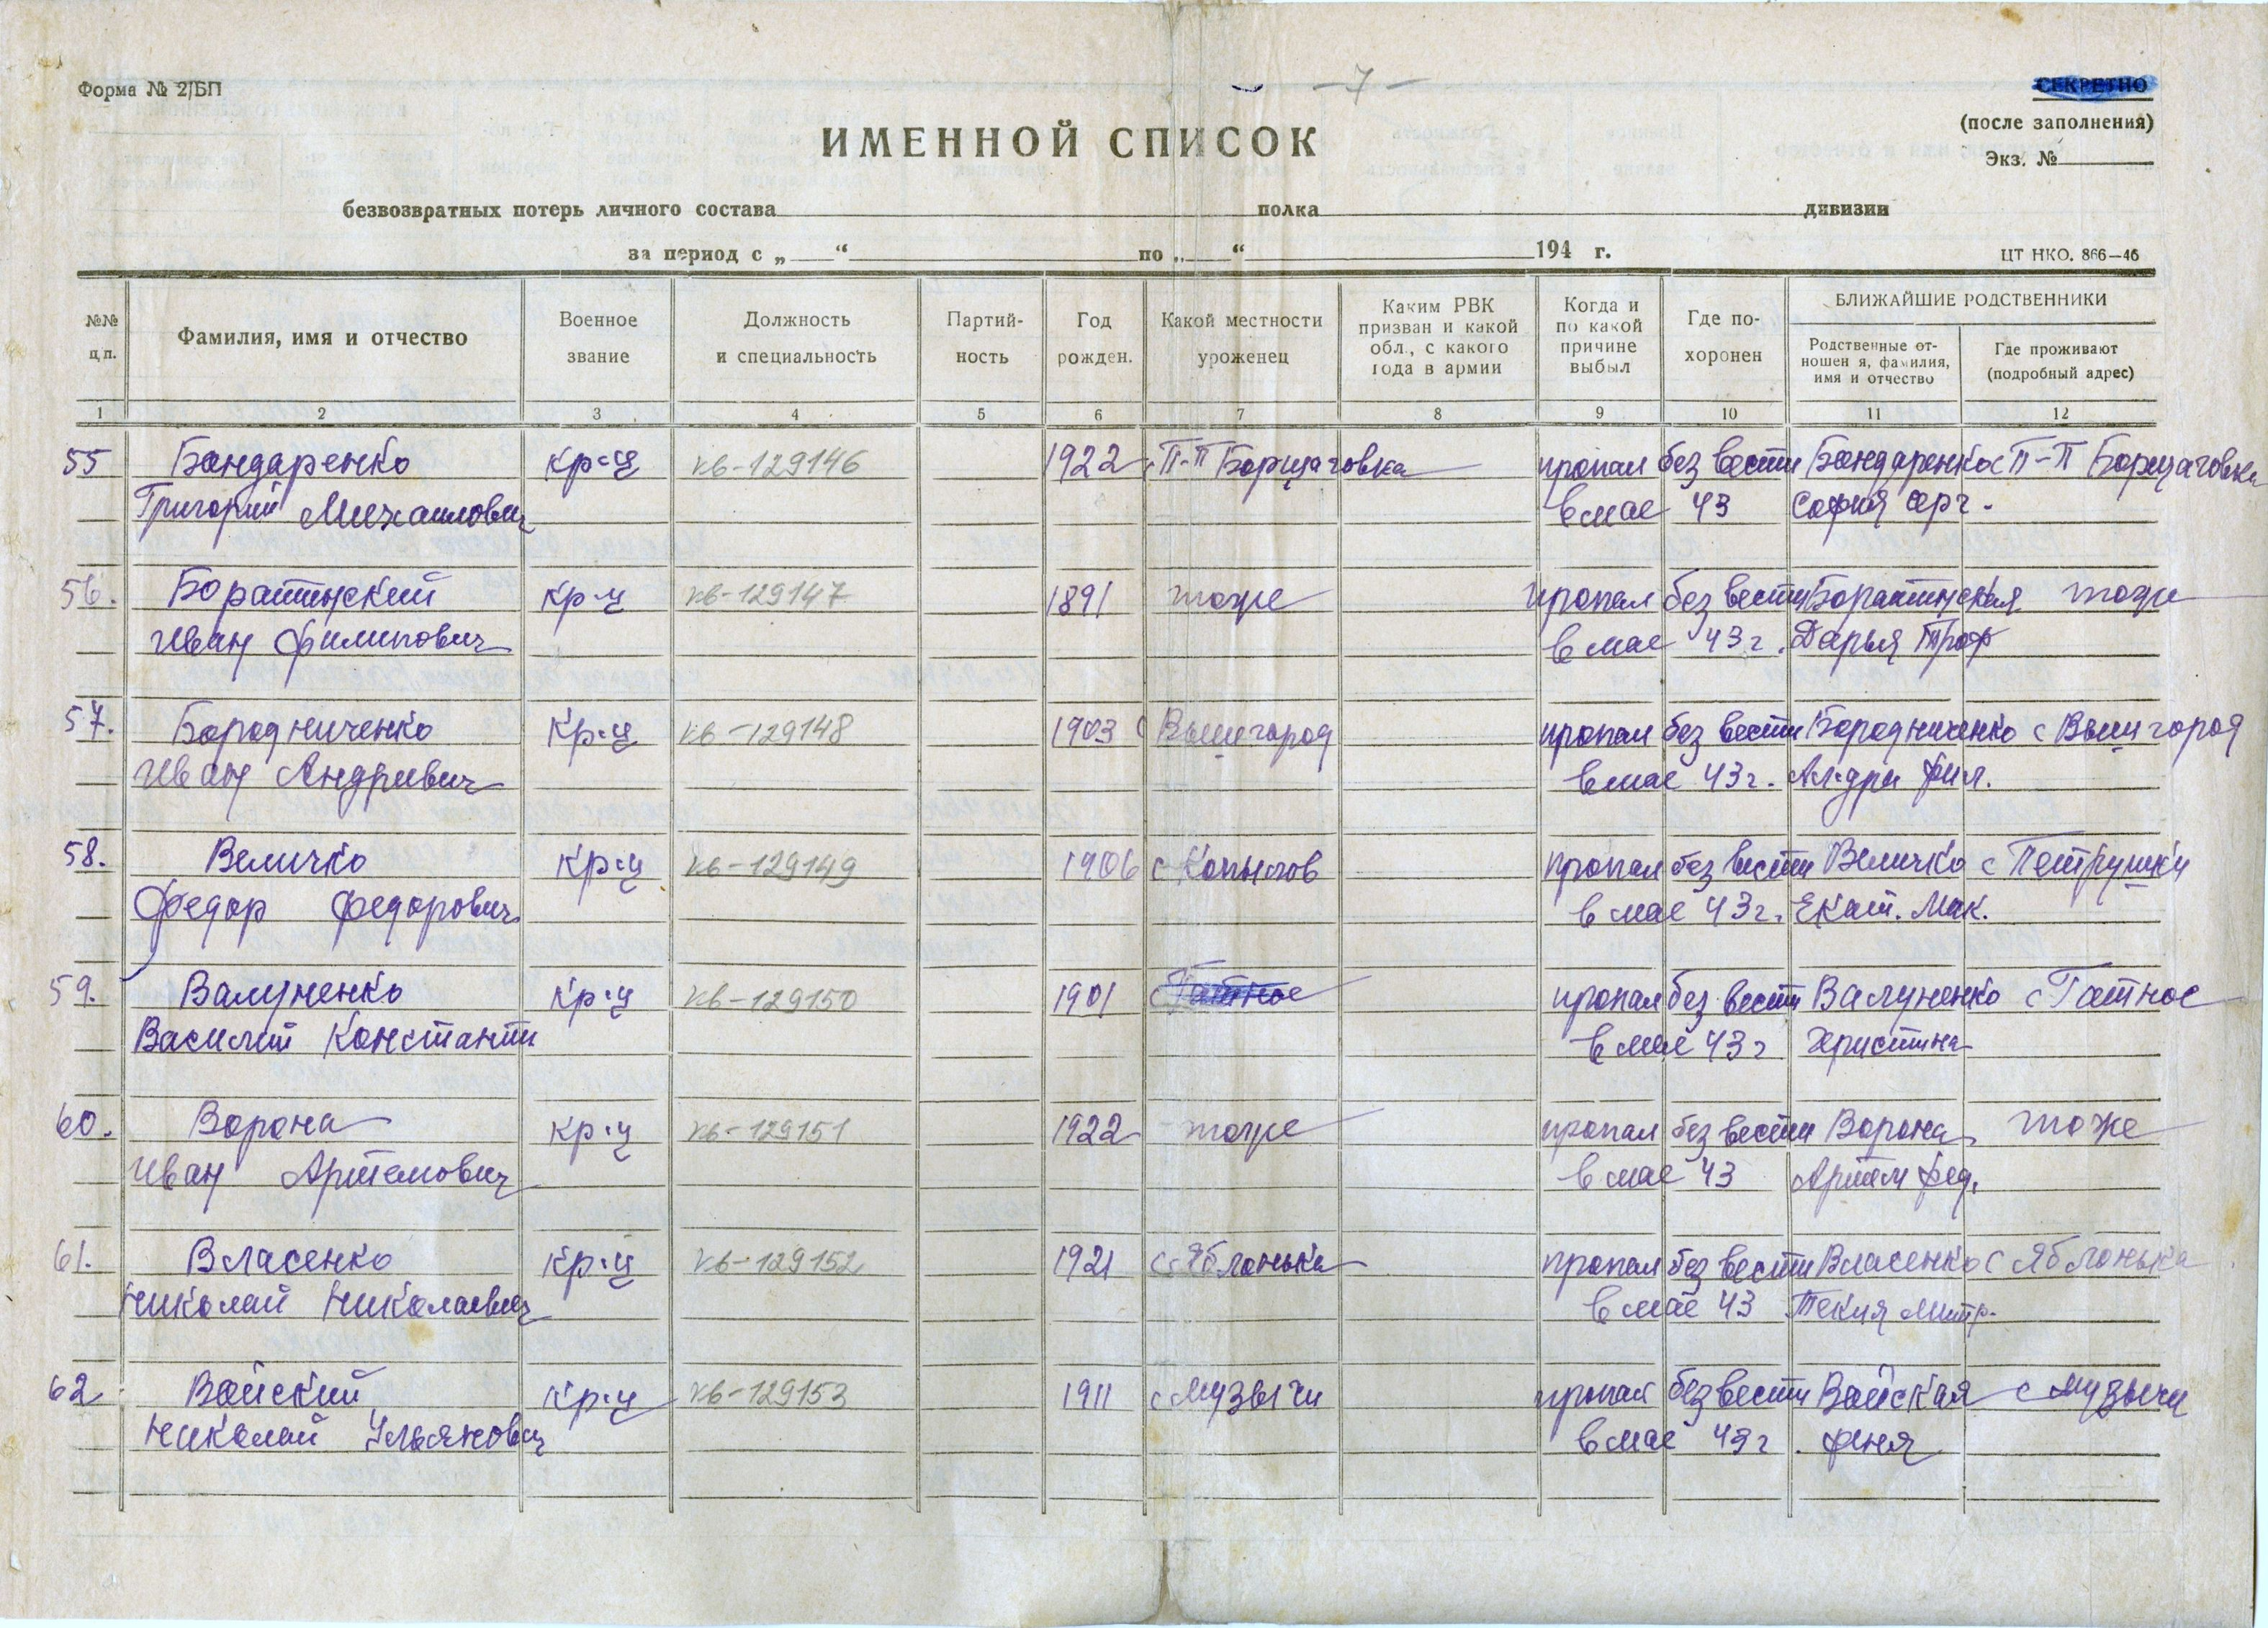 Форма № 2/БП
- 7 -
СЕКРЕТНО
(после заполнения)
Экз. №
ИМЕННОЙ СПИСОК
безвозвратных потерь личного состава полка дивизии
за период с „ “ по „ “ 194 г.
ЦТ НКО. 866—46
№№ ц.п. Фамилия, имя и отчество Военное звание Должность и специальность Партий- ность Год рожден. Какой местности уроженец Каким РВК призван и какой обл., с какого года в армии Когда и по какой причине выбыл Где по- хоронен БЛИЖАЙШИЕ РОДСТВЕННИКИ Родственные от- ношен я, фамилия, имя и отчество Где проживают (подробный адрес)
1 2 3 4 5 6 7 8 9 10 11 12
55 Бондаренко кр-ц кв-129146 1922 с П-П Борщаговка пропал без вести Бондаренко с П-П Борщаговка
Григорий Михаилович в мае 43 София серг.
56. Боратинский кр-ц кв-129147 1891 тоже пропал без вести Боратинская тоже
Иван Филипович в мае 43 г. Дарья Троф
57. Бородниченко кр-ц кв-129148 1903 с Вышгород пропал без вести Бородниченко с Вышгород
Иван Андривич в мае 43 г. Ал-дри Фил.
58. Величко кр-ц кв-129149 1906 с Копылов пропал без вести Величко с Петрушки
Федор Федорович в мае 43 г. Екат. Мак.
59. Валуненко кр-ц кв-129150 1901 с Гатное пропал без вести Валуненко с Гатное
Василий Константи в мае 43 г Христина
60. Ворона кр-ц кв-129151 1922 тоже пропал без вести Ворона тоже
Иван Артемович в мае 43 Артем Фед.
61. Власенко кр-ц кв-129152 1921 с Яблонька пропал без вести Власенко с Яблонька
Николай Николаевич в мае 43 Текля Митр.
62 Войский кр-ц кв-129153 1911 с Музычи пропал без вести Войская с Музычи
Николай Ульянович в мае 43 г. Феня